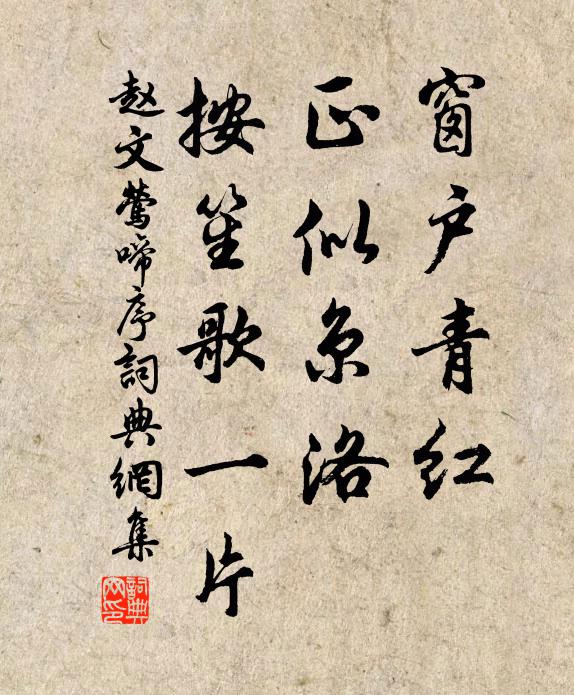 窗户青红
正似京洛
按笙歌一片
赵文莺啼序詞典網集
詞典网印